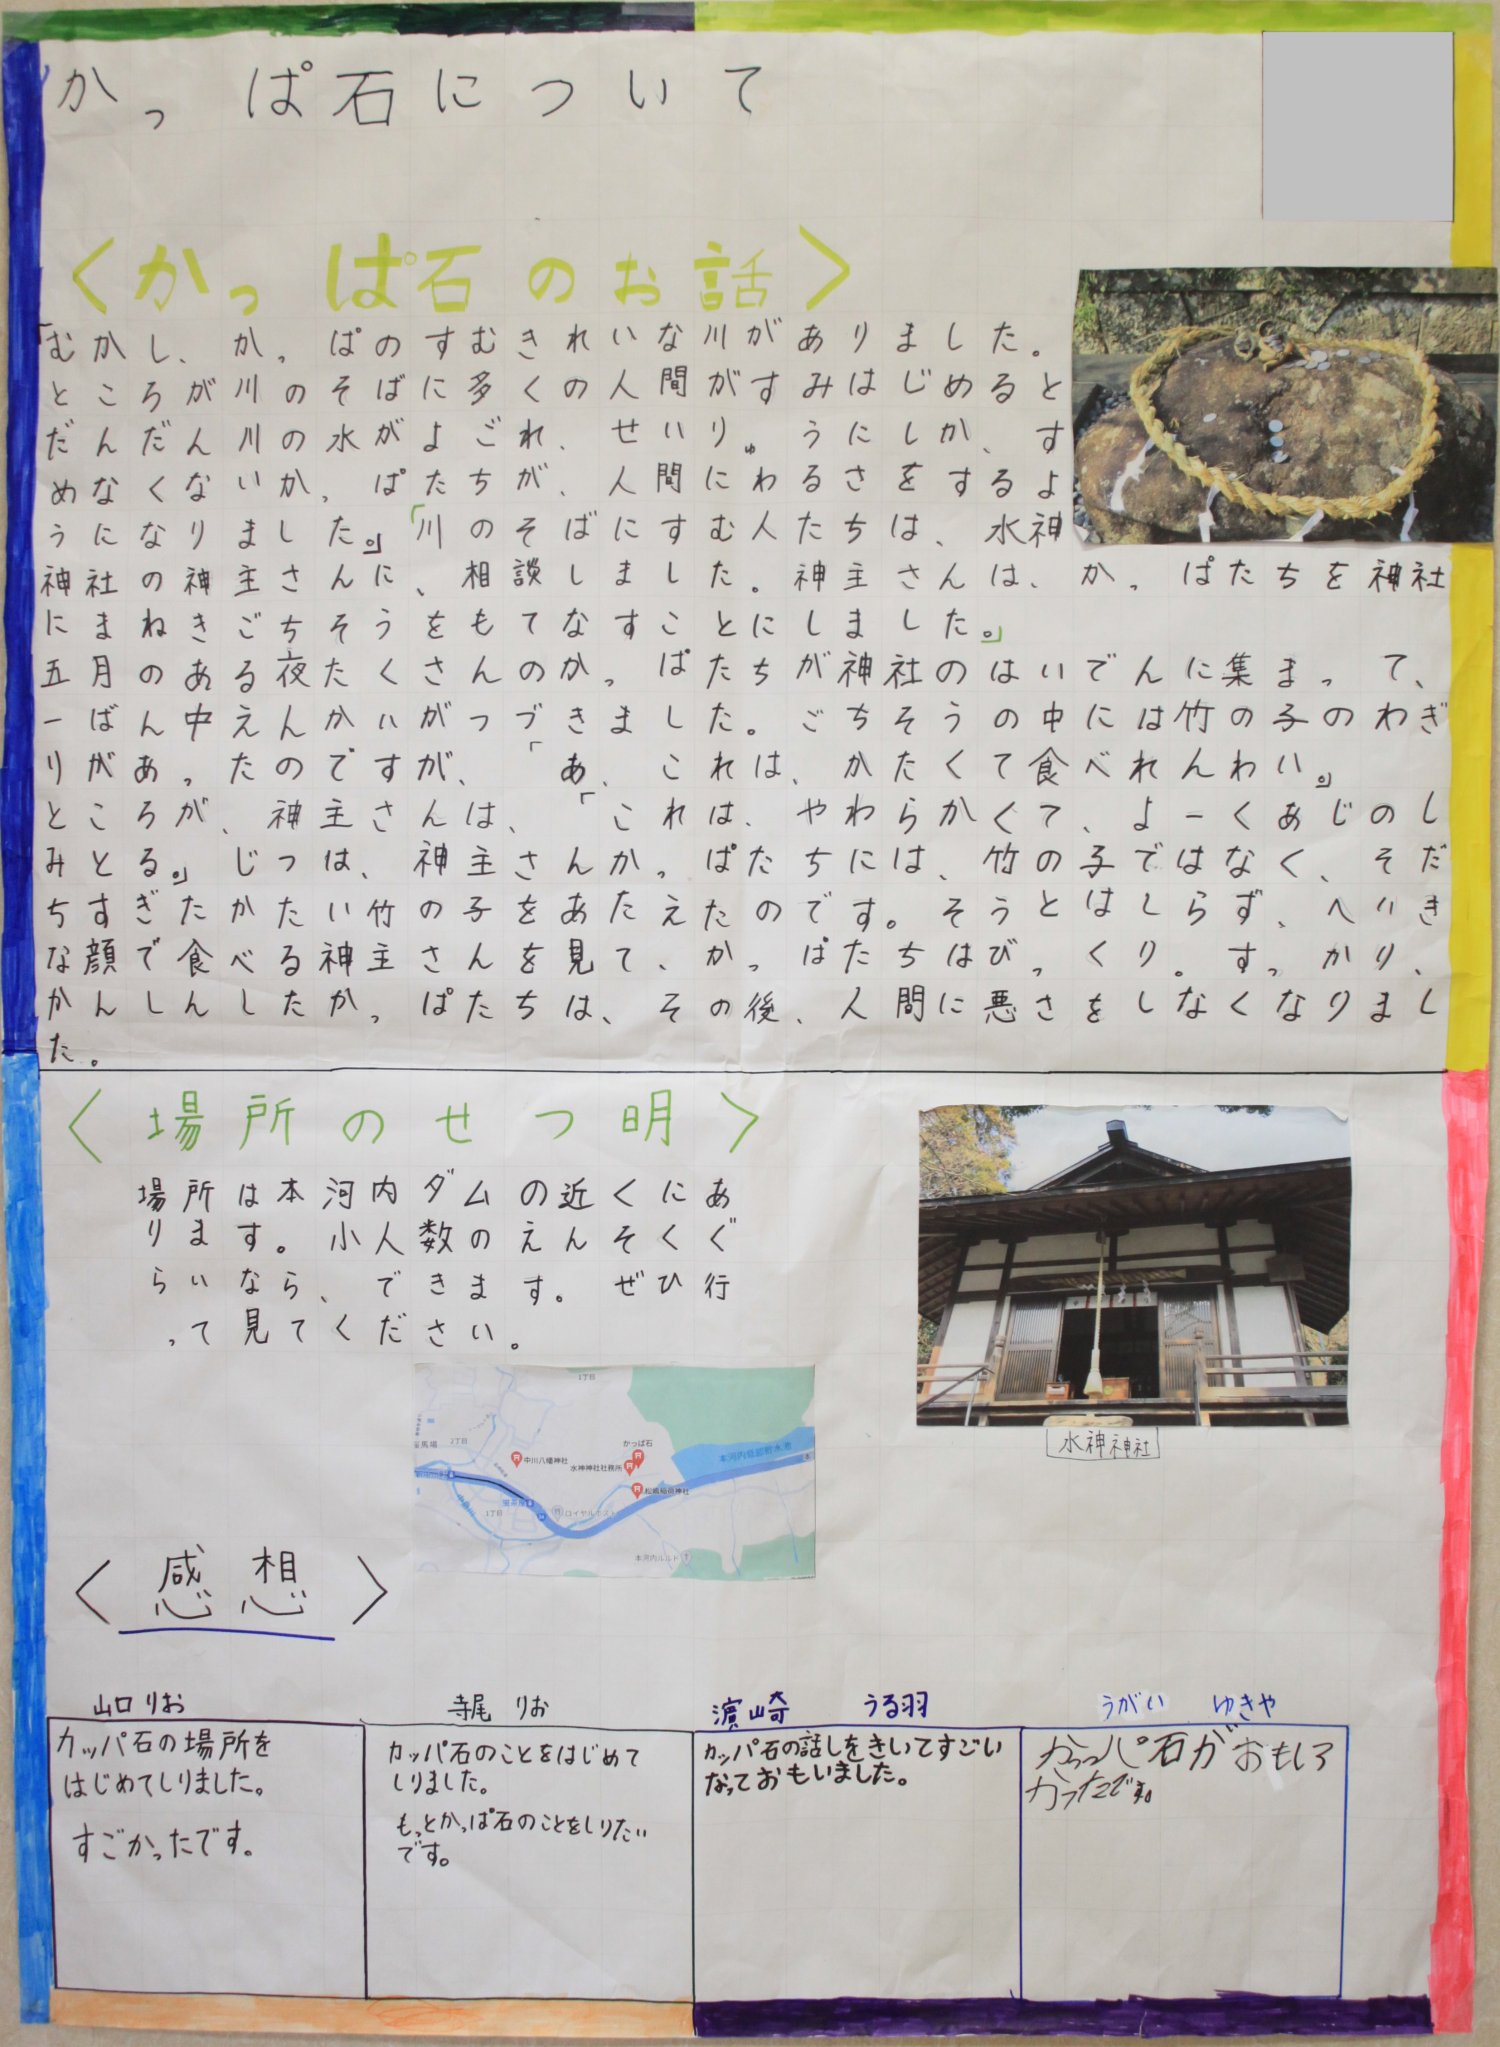 かっぱ石について
〈かっぱ石のお話〉
「むかし、かっぱのすむきれいな川がありました。
ところが川のそばに多くの人間がすみはじめると
だんだん川の水がよごれ、せいりゅうにしか、す
めなくないかっぱたちが、人間にわるさをするよ
うになりました。」「川のそばにすむ人たちは、水神
神社の神主さんに、相談しました。神主さんは、かっぱたちを神社
にまねきごちそうをもてなすことにしました。」
五月のある夜たくさんのかっぱたちが神社のはいでんに集まって、
一ばん中えんかいがつづきました。ごちそうの中には竹の子のわぎ
りがあったのですが、「あ、これは、かたくて食べれんわい。」
ところが、神主さんは、「これは、やわらかくて、よーくあじのし
みとる。」じつは、神主さんかっぱたちには、竹の子ではなく、そだ
ちすぎたかたい竹の子をあたえたのです。そうとはしらず、へいき
な顔で食べる神主さんを見て、かっぱたちはびっくり。すっかり、
かんしんしたかっぱたちは、その後、人間に悪さをしなくなりまし
た。
〈場所のせつ明〉
場所は本河内ダムの近くにあ
ります。小人数のえんそくぐ
らいなら、できます。ぜひ行
って見てください。
水神神社
1丁目
2丁目
かっぱ石
中川八幡神社
水神神社社務所
本河内低部貯水池
松嶋稲荷神社
蛍茶屋
1丁目
ロイヤルホスト
本河内ルルド
〈感想〉
山口りお
カッパ石の場所を
はじめてしりました。
すごかったです。
寺尾 りお
カッパ石のことをはじめて
しりました。
もっとかっぱ石のことをしりたい
です。
濵崎 うる羽
カッパ石の話しをきいてすごい
なっておもいました。
うがい ゆきや
かっパ石がおもしろ
かったです。